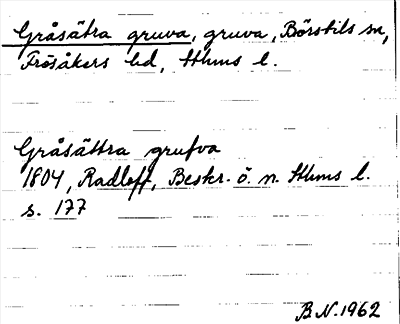 Gråsätra gruva, gruva, Börstils sn,
Frösåkers hd, Sthms l.
Gråsättra grufva
1804, Radloff, Beskr. ö. n. Sthms l.
s. 177
B.N. 1962